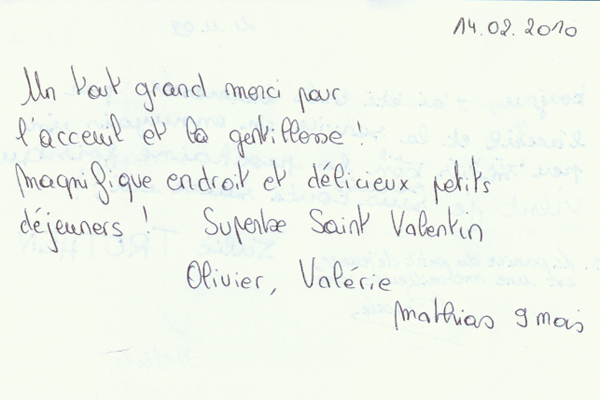 14.02.2010
Un tout grand merci pour
l'acceuil et la gentillesse !
Magnifique endroit et délicieux petits
déjeuners ! Superbe Saint Valentin
Olivier, Valérie
Mathias 9 mois